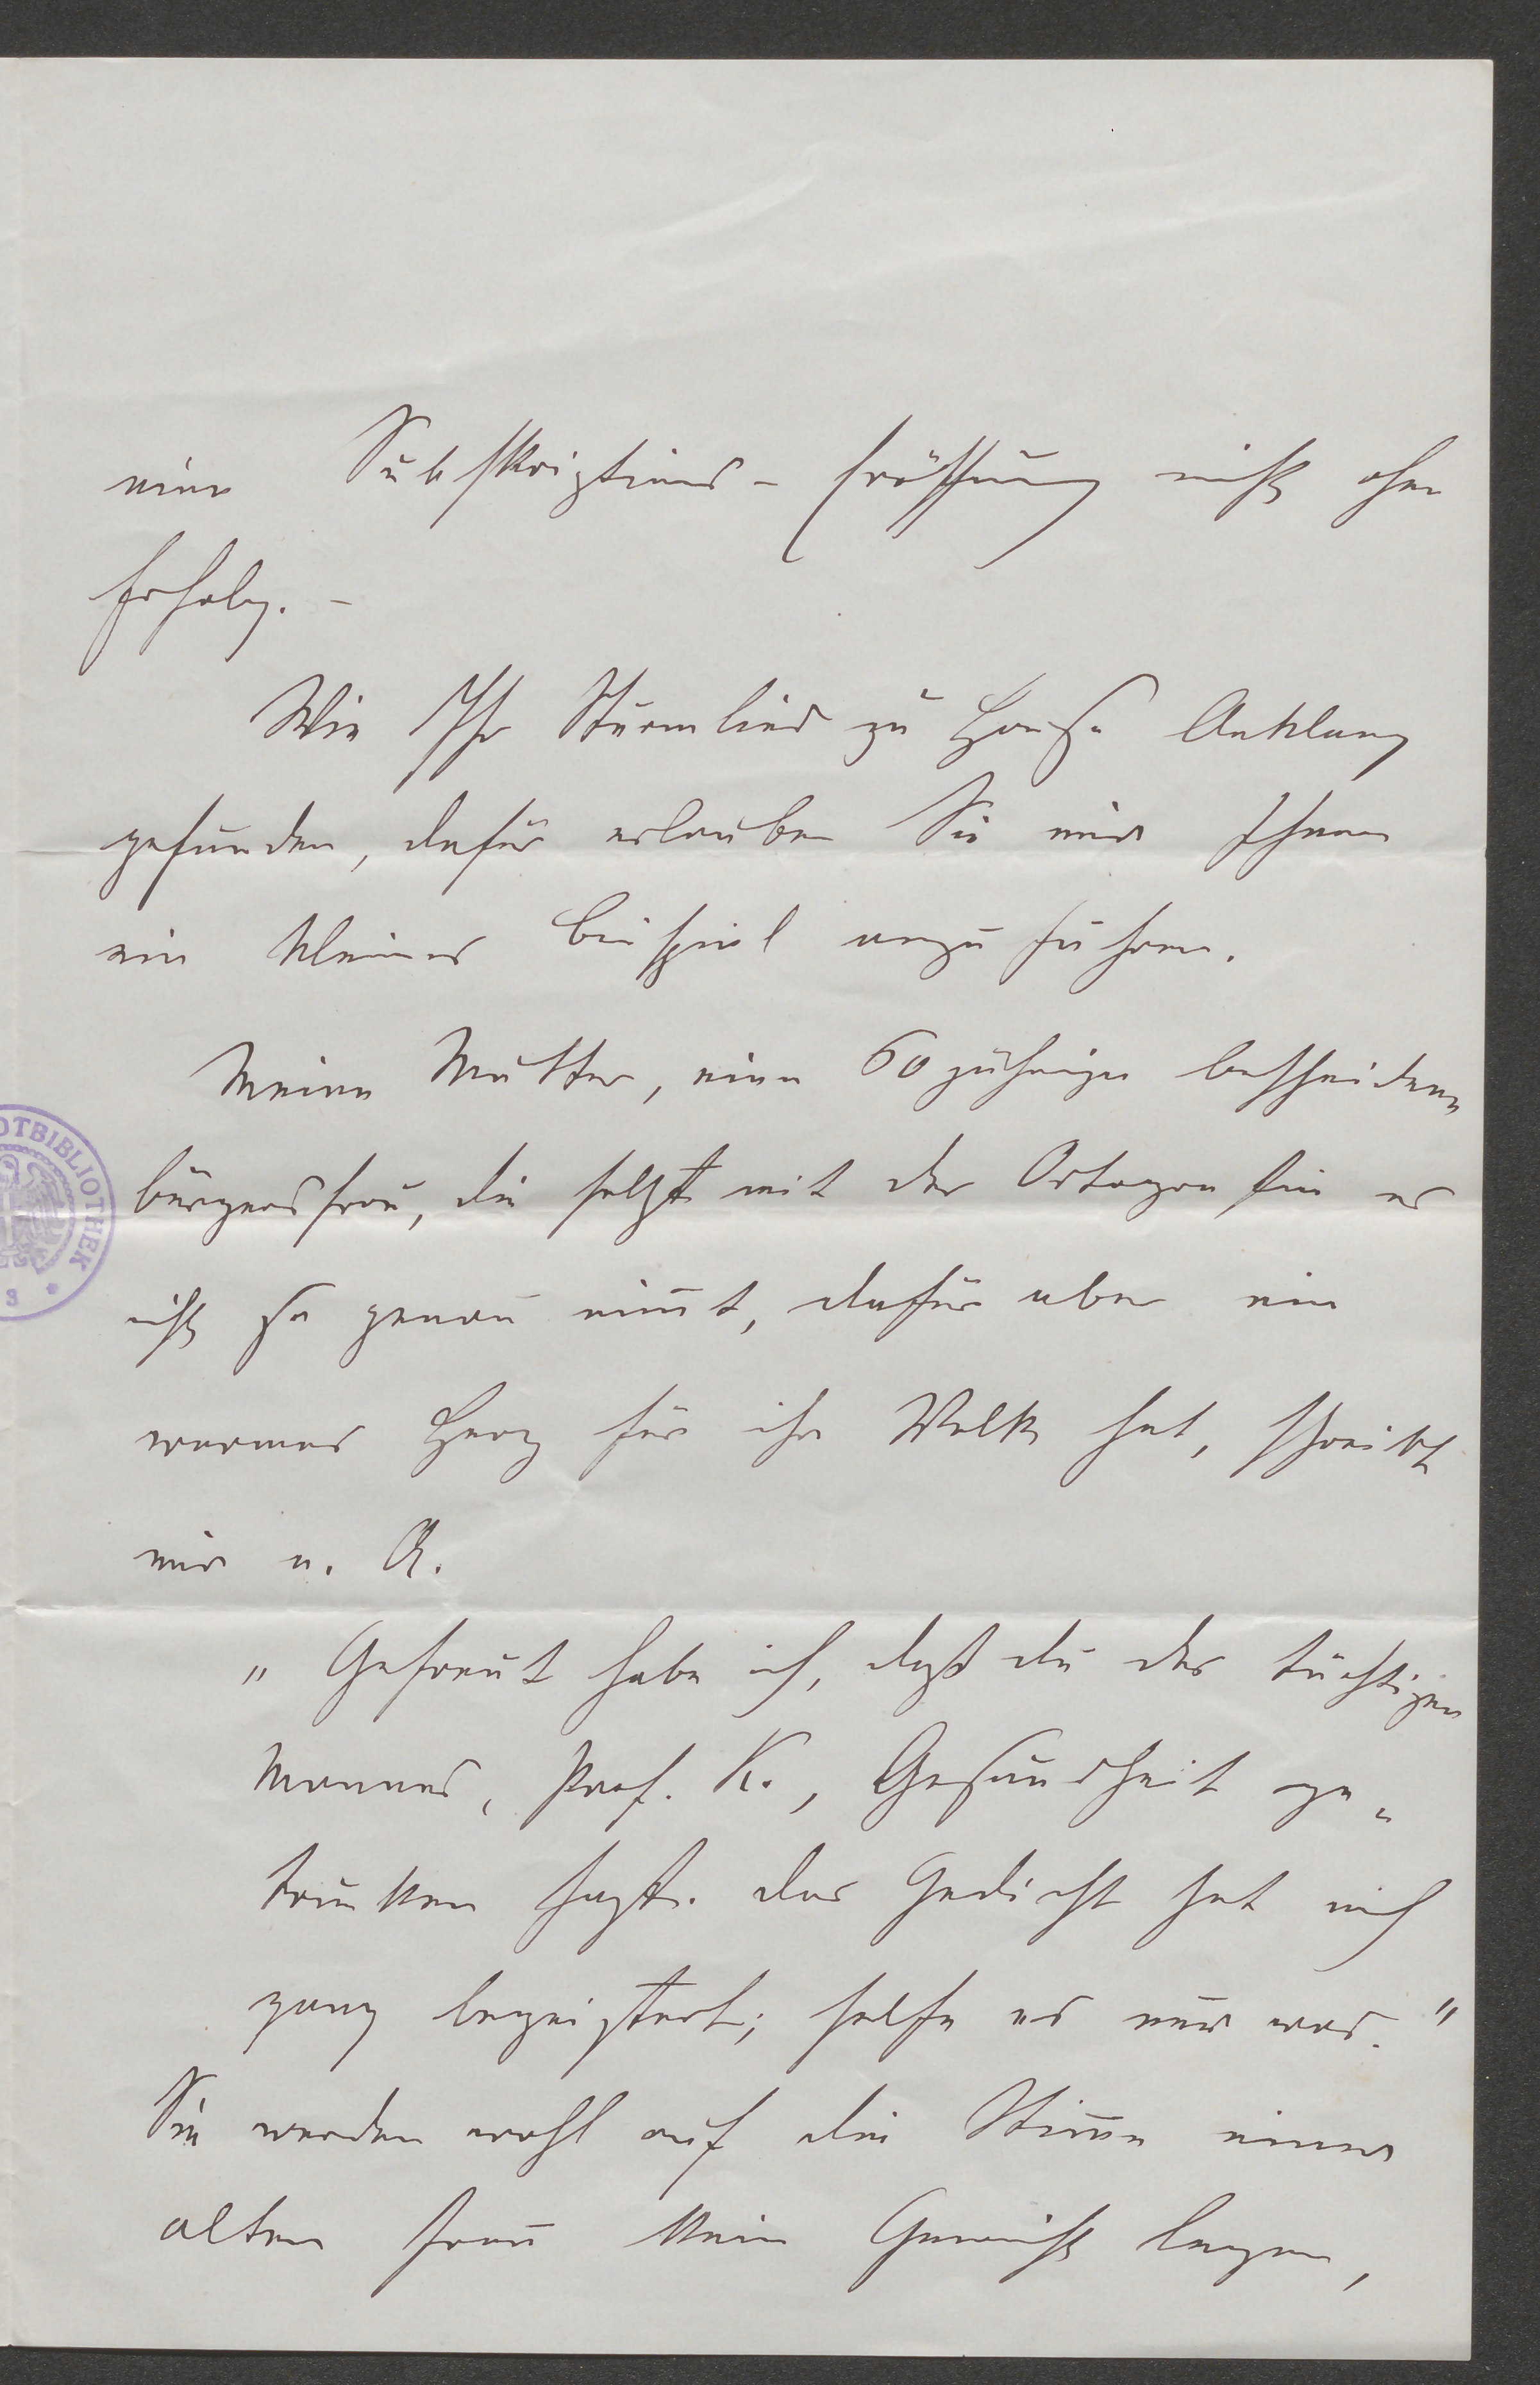 einer Subskriptions-Eröffnung nicht ohne
Erfolg. –
Wie Ihr Sturmlied zu Hause Anklang
gefunden, dafür erlauben Sie mir Ihnen
ein kleines Beispiel anzuführen.
Meine Mutter, eine 60jährige bescheidene
Bürgersfrau, die selbst mit der Ortografie es
nicht so genau nimmt, dafür aber ein
warmes Herz für ihr Volk hat, schreibt
mir u. A.
„Gefreut habe ich, daß du des tüchtigen
Mannes, Prof. K., Gesundheit ge„
trunken hast. Das Gedicht hat mich
ganz begeistert; helfe es nur was."
Sie werden wohl auf die Stimme einer
alten Frau kein Gewicht legen,
OTBIBLIOTHEK